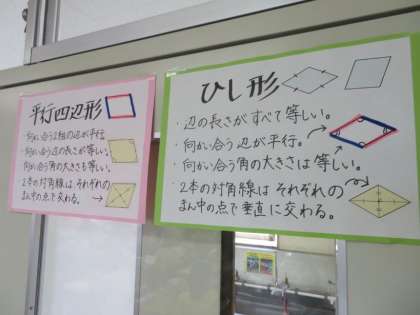 平行四辺形
・向かい合う2組の辺が平行。
・向かい合う辺の長さが等しい。
・向かい合う角の大きさも等しい。
・2本の対角線は、それぞれの
まん中の点で交わる。
ひし形
・辺の長さがすべて等しい。
・向かい合う辺が平行。
・向かい合う角の大きさは等しい。
・2本の対角線はそれぞれの
まん中の点で垂直に交わる。